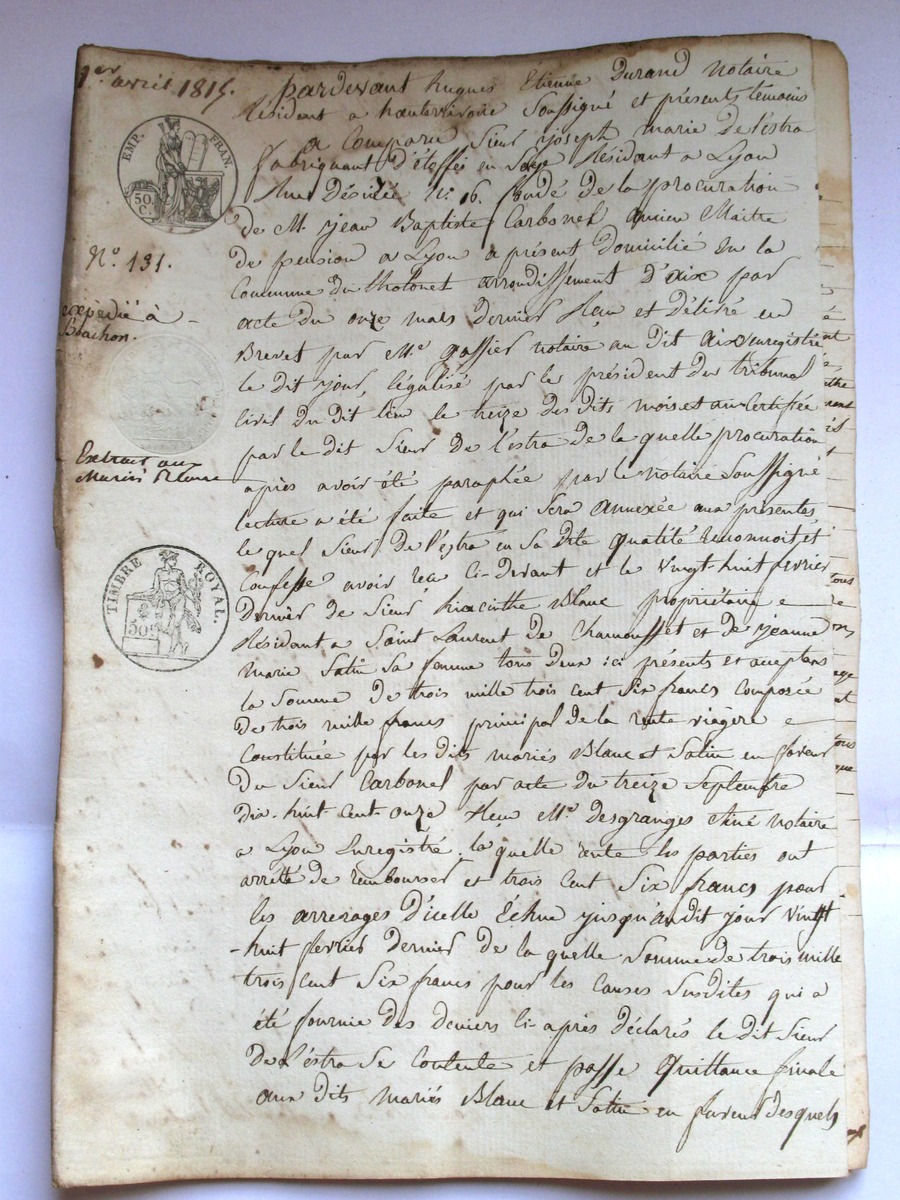 1er avril 1815.
EMP. FRAN.
50 C.
N.o 131.
expédié à
Extrait aux
Mariés Blanc
TIMBRE ROYAL.
50
pardevant hugues Étienne Durand Notaire
Résident a hauterivoire Soussigné et présents temoins
a Comparu Sieur joseph marie De l'éstra
fabriquant d'étoffes en Soye Résidant a Lyon
N.o 16. fondé de la procuration
de M. jean Baptiste Carbonel ancien Maitre
de pension a Lyon a présent Domicilié en la
Commune du tholonet arrondissement D'aix par
acte du onze mars dernier Reçu et Délivré en
Brevet par Me. gassier notaire au Dit aix enregistré
le dit jour, légalisé par le président du tribunal
Civil du dit lieu le treize des dits mois et an Certifiée
par le dit Sieur De l'estra de la quelle procuration
après avoir été paraphée par le notaire Soussigné
lecture a été faite et qui Sera annexée aux présentes
le quel Sieur De l'éstra en Sa Dite qualité reconnoit et
Confesse avoir reçu Ci-devant et le Vingt-huit fevrier
dernier de Sieur hiacinthe Blanc propriétaire
Résidant a Saint Laurent de Chamousset et de jeanne
marie Satin Sa femme tous Deux ici présents et acceptans
la Somme de trois mille trois cent Six francs Composée
De trois mille francs principal de la rente viagère
Constituée par les dits mariés Blanc et Satin en faveur
Du Sieur Carbonel par acte du treize Septembre
dix-huit-Cent-onze Reçu Me. Desgranges ainé notaire
a Lyon Enregistré. la quelle rente les parties ont
arrêté de rembourser et trois Cent Six francs pour
les arrerages d'icelle Échue jusqu'au dit jour Vingt
-huit fevrier dernier de la quelle Somme de trois mille
trois Cent Six francs pour les Causes Susdites qui a
été fournie des deniers Ci-après déclarés le dit Sieur
De l'éstra Se Contente et passe Quittance finale
aux dits mariés Blanc et Satin en faveur desquels